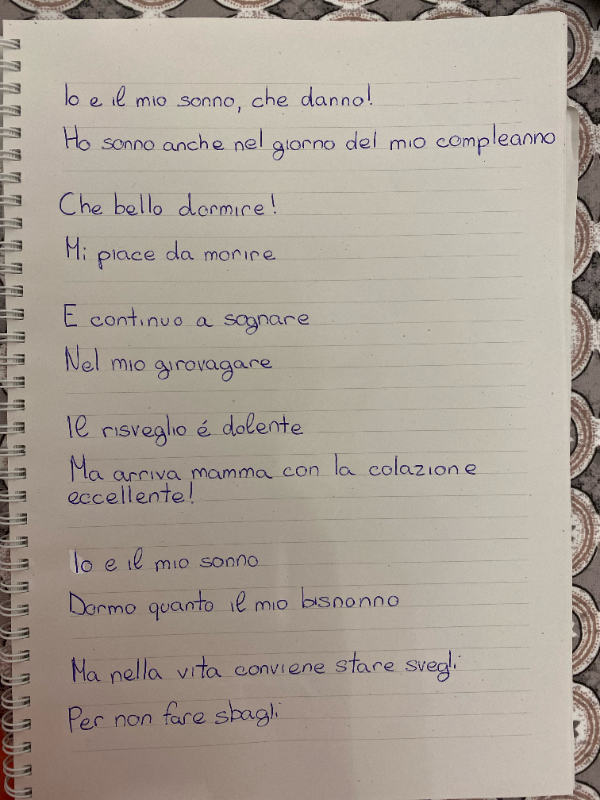 Io e il mio sonno, che danno!
Ho sonno anche nel giorno del mio compleanno
Che bello dormire!
Mi piace da morire
E continuo a sognare
Nel mio girovagare
Il risveglio é dolente
Ma arriva mamma con la colazione
eccellente!
Io e il mio sonno
Dormo quanto il mio bisnonno
Ma nella vita conviene stare svegli
Per non fare sbagli